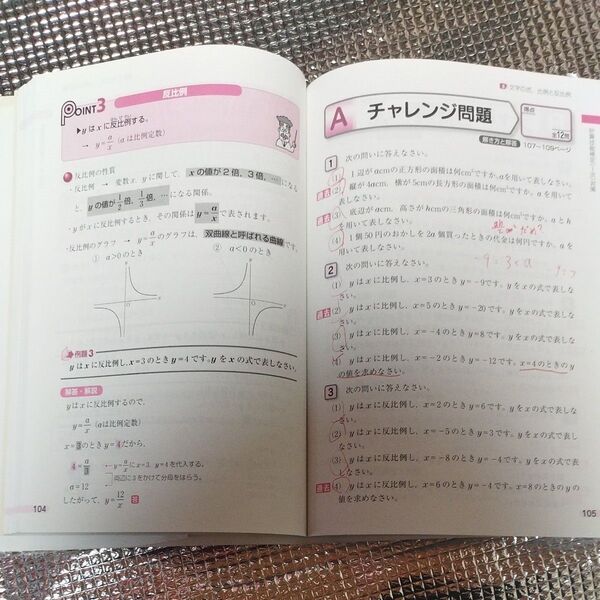 POINT3
反比例
▶yはxに反比例する。
→ y=a/x (aは比例定数)
●反比例の性質
・反比例 → 変数x, yに関して, xの値が2倍, 3倍, …になる
と, yの値が1/2倍, 1/3倍, …になる関係。
・yがxに反比例するとき, その関係はy=a/xで表されます。
・反比例のグラフ → y=a/xのグラフは, 双曲線と呼ばれる曲線です。
① a>0のとき
② a<0のとき
y
O
x
y
O
x
例題3
yはxに反比例し, x=3のときy=4です。yをxの式で表しなさい。
解答・解説
yはxに反比例するので,
y=a/x (aは比例定数)
x=3のときy=4だから,
4=a/3
←y=a/xにx=3, y=4を代入する。
a=12
←両辺に3をかけて分母をはらう。
したがって, y=12/x 答
104
文字の式, 比例と反比例
A
チャレンジ問題
得点
全12問
解き方と解答
107~109ページ
1 次の問いに答えなさい。
(1) 1辺がacmの正方形の面積は何cm²ですか。aを用いて表しなさい。
過去 (2) 縦が4acm, 横が5cmの長方形の面積は何cm²ですか。aを用いて表しなさい。
(3) 底辺がacm, 高さがhcmの三角形の面積は何cm²ですか。aとhを用いて表しなさい。
(4) 1個50円のおかしを2a個買ったときの代金は何円ですか。aを用いて表しなさい。
2 次の問いに答えなさい。
(1) yはxに比例し, x=3のときy=-9です。yをxの式で表しなさい。
過去 (2) yはxに比例し, x=5のときy=-20です。yをxの式で表しなさい。
(3) yはxに比例し, x=-4のときy=8です。yをxの式で表しなさい。
過去 (4) yはxに比例し, x=-2のときy=-12です。x=4のときのyの値を求めなさい。
3 次の問いに答えなさい。
(1) yはxに反比例し, x=2のときy=6です。yをxの式で表しなさい。
過去 (2) yはxに反比例し, x=-5のときy=3です。yをxの式で表しなさい。
(3) yはxに反比例し, x=-8のときy=-4です。yをxの式で表しなさい。
過去 (4) yはxに反比例し, x=6のときy=-4です。x=8のときのyの値を求めなさい。
105